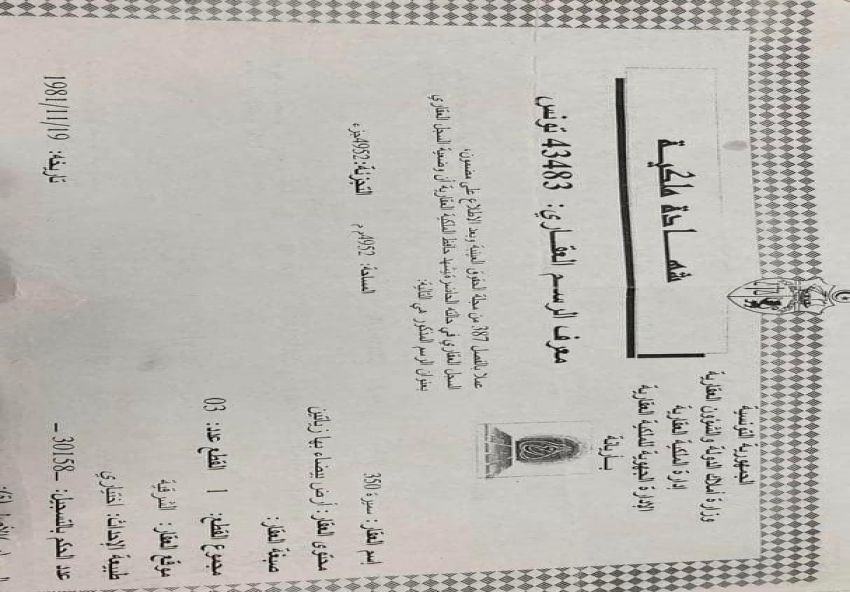 الجمهورية التونسية
وزارة أملاك الدولة والشؤون العقارية
إدارة الملكية العقارية
الإدارة الجهوية للملكية العقارية
بأريانة
شهـــادة ملكيـــة
معرف الرسم العقـــاري: 43483 تونس
عملا بالفصل 387 من مجلة الحقوق العينية وبعد الاطلاع على مضمون،
السجل العقاري في حالته الحاضرة يشهد حافظ الملكية العقارية أن وضعية السجل العقاري
بعنوان الرسم المذكور هي التالية:
اسم العقار: سيرة 350 المساحة: 4952م م التجزئة: 4952جزء
محتوى العقار: أرض بيضاء بها زياتين
صبغة العقار:
مجموع القطع: 1 القطع عدد: 03
موقع العقار: الشرقية
طبيعة الإحداث: اختياري
عدد الحكم بالتسجيل: _30158 _ تاريخه: 1981/11/19